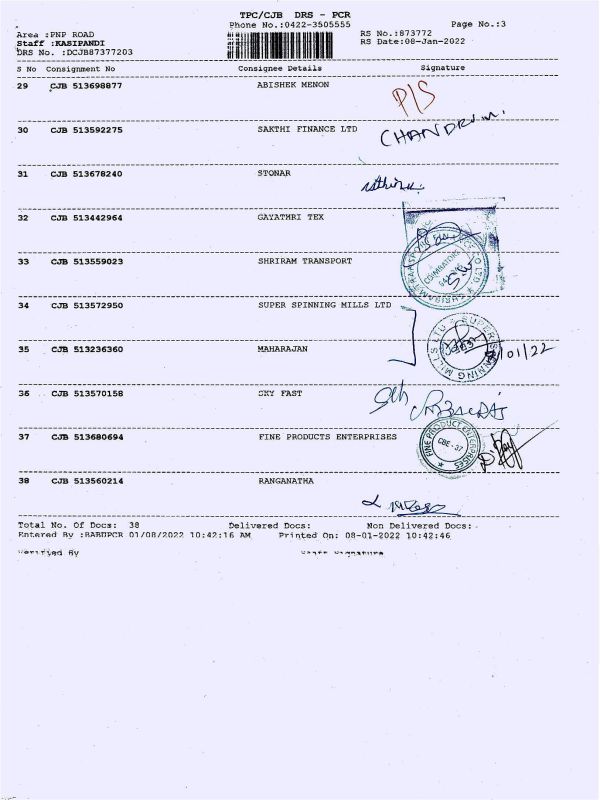 TPC/CJB DRS - PCR
Phone No.:0422-3505555 Page No.:3
Area :PNP ROAD RS No.:873772
Staff :KASIPANDI RS Date:08-Jan-2022
DRS No. :DCJB87377203
S No Consignment No Consignee Details Signature
29 CJB 513698877 ABISHEK MENON P/S
30 CJB 513592275 SAKTHI FINANCE LTD CHANDRU.M.
31 CJB 513678240 STONAR
32 CJB 513442964 GAYATHRI TEX
33 CJB 513559023 SHRIRAM TRANSPORT
COIMBATORE
34 CJB 513572950 SUPER SPINNING MILLS LTD
SUPER SPINNING MILLS LTD
35 CJB 513236360 MAHARAJAN /01/22
36 CJB 513570158 SKY FAST
37 CJB 513680694 FINE PRODUCTS ENTERPRISES
FINE PRODUCT ENTERPRISES
CBE - 37
38 CJB 513560214 RANGANATHA
Total No. Of Docs: 38 Delivered Docs: Non Delivered Docs:
Entered By :BABUPCR 01/08/2022 10:42:16 AM Printed On: 08-01-2022 10:42:46
Verified By Staff Signature